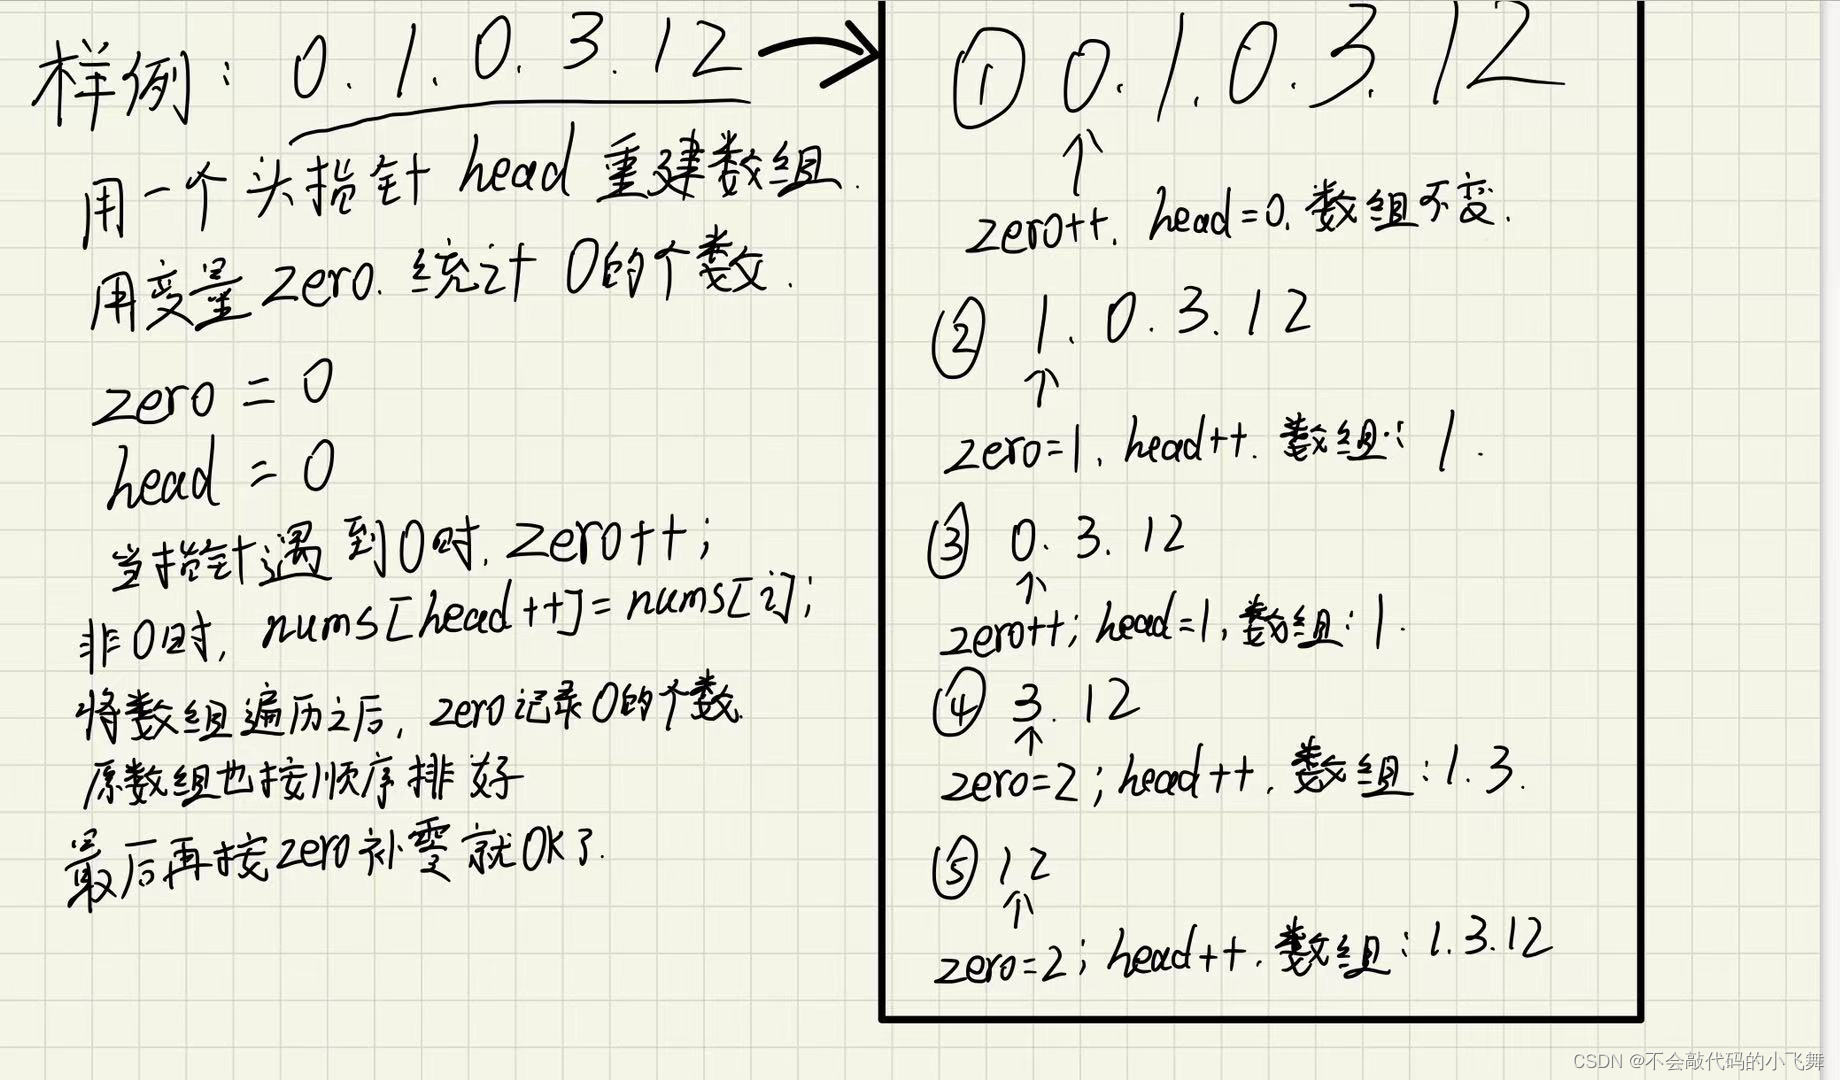 样例：0. 1. 0. 3. 12
用一个头指针 head 重建数组.
用变量 zero. 统计 0的个数.
zero = 0
head = 0
当指针遇到0时, zero++;
非0时, nums[head++]=nums[i];
将数组遍历之后, zero记录0的个数.
原数组也按顺序排好
最后再按zero补零就OK了.
① 0. 1. 0. 3. 12
↑
zero++. head=0. 数组不变.
② 1. 0. 3. 12
↑
zero=1, head++. 数组: 1.
③ 0. 3. 12
↑
zero++; head=1, 数组: 1.
④ 3. 12
↑
zero=2; head++. 数组: 1. 3.
⑤ 12
↑
zero=2; head++. 数组: 1. 3. 12
CSDN @不会敲代码的小飞舞